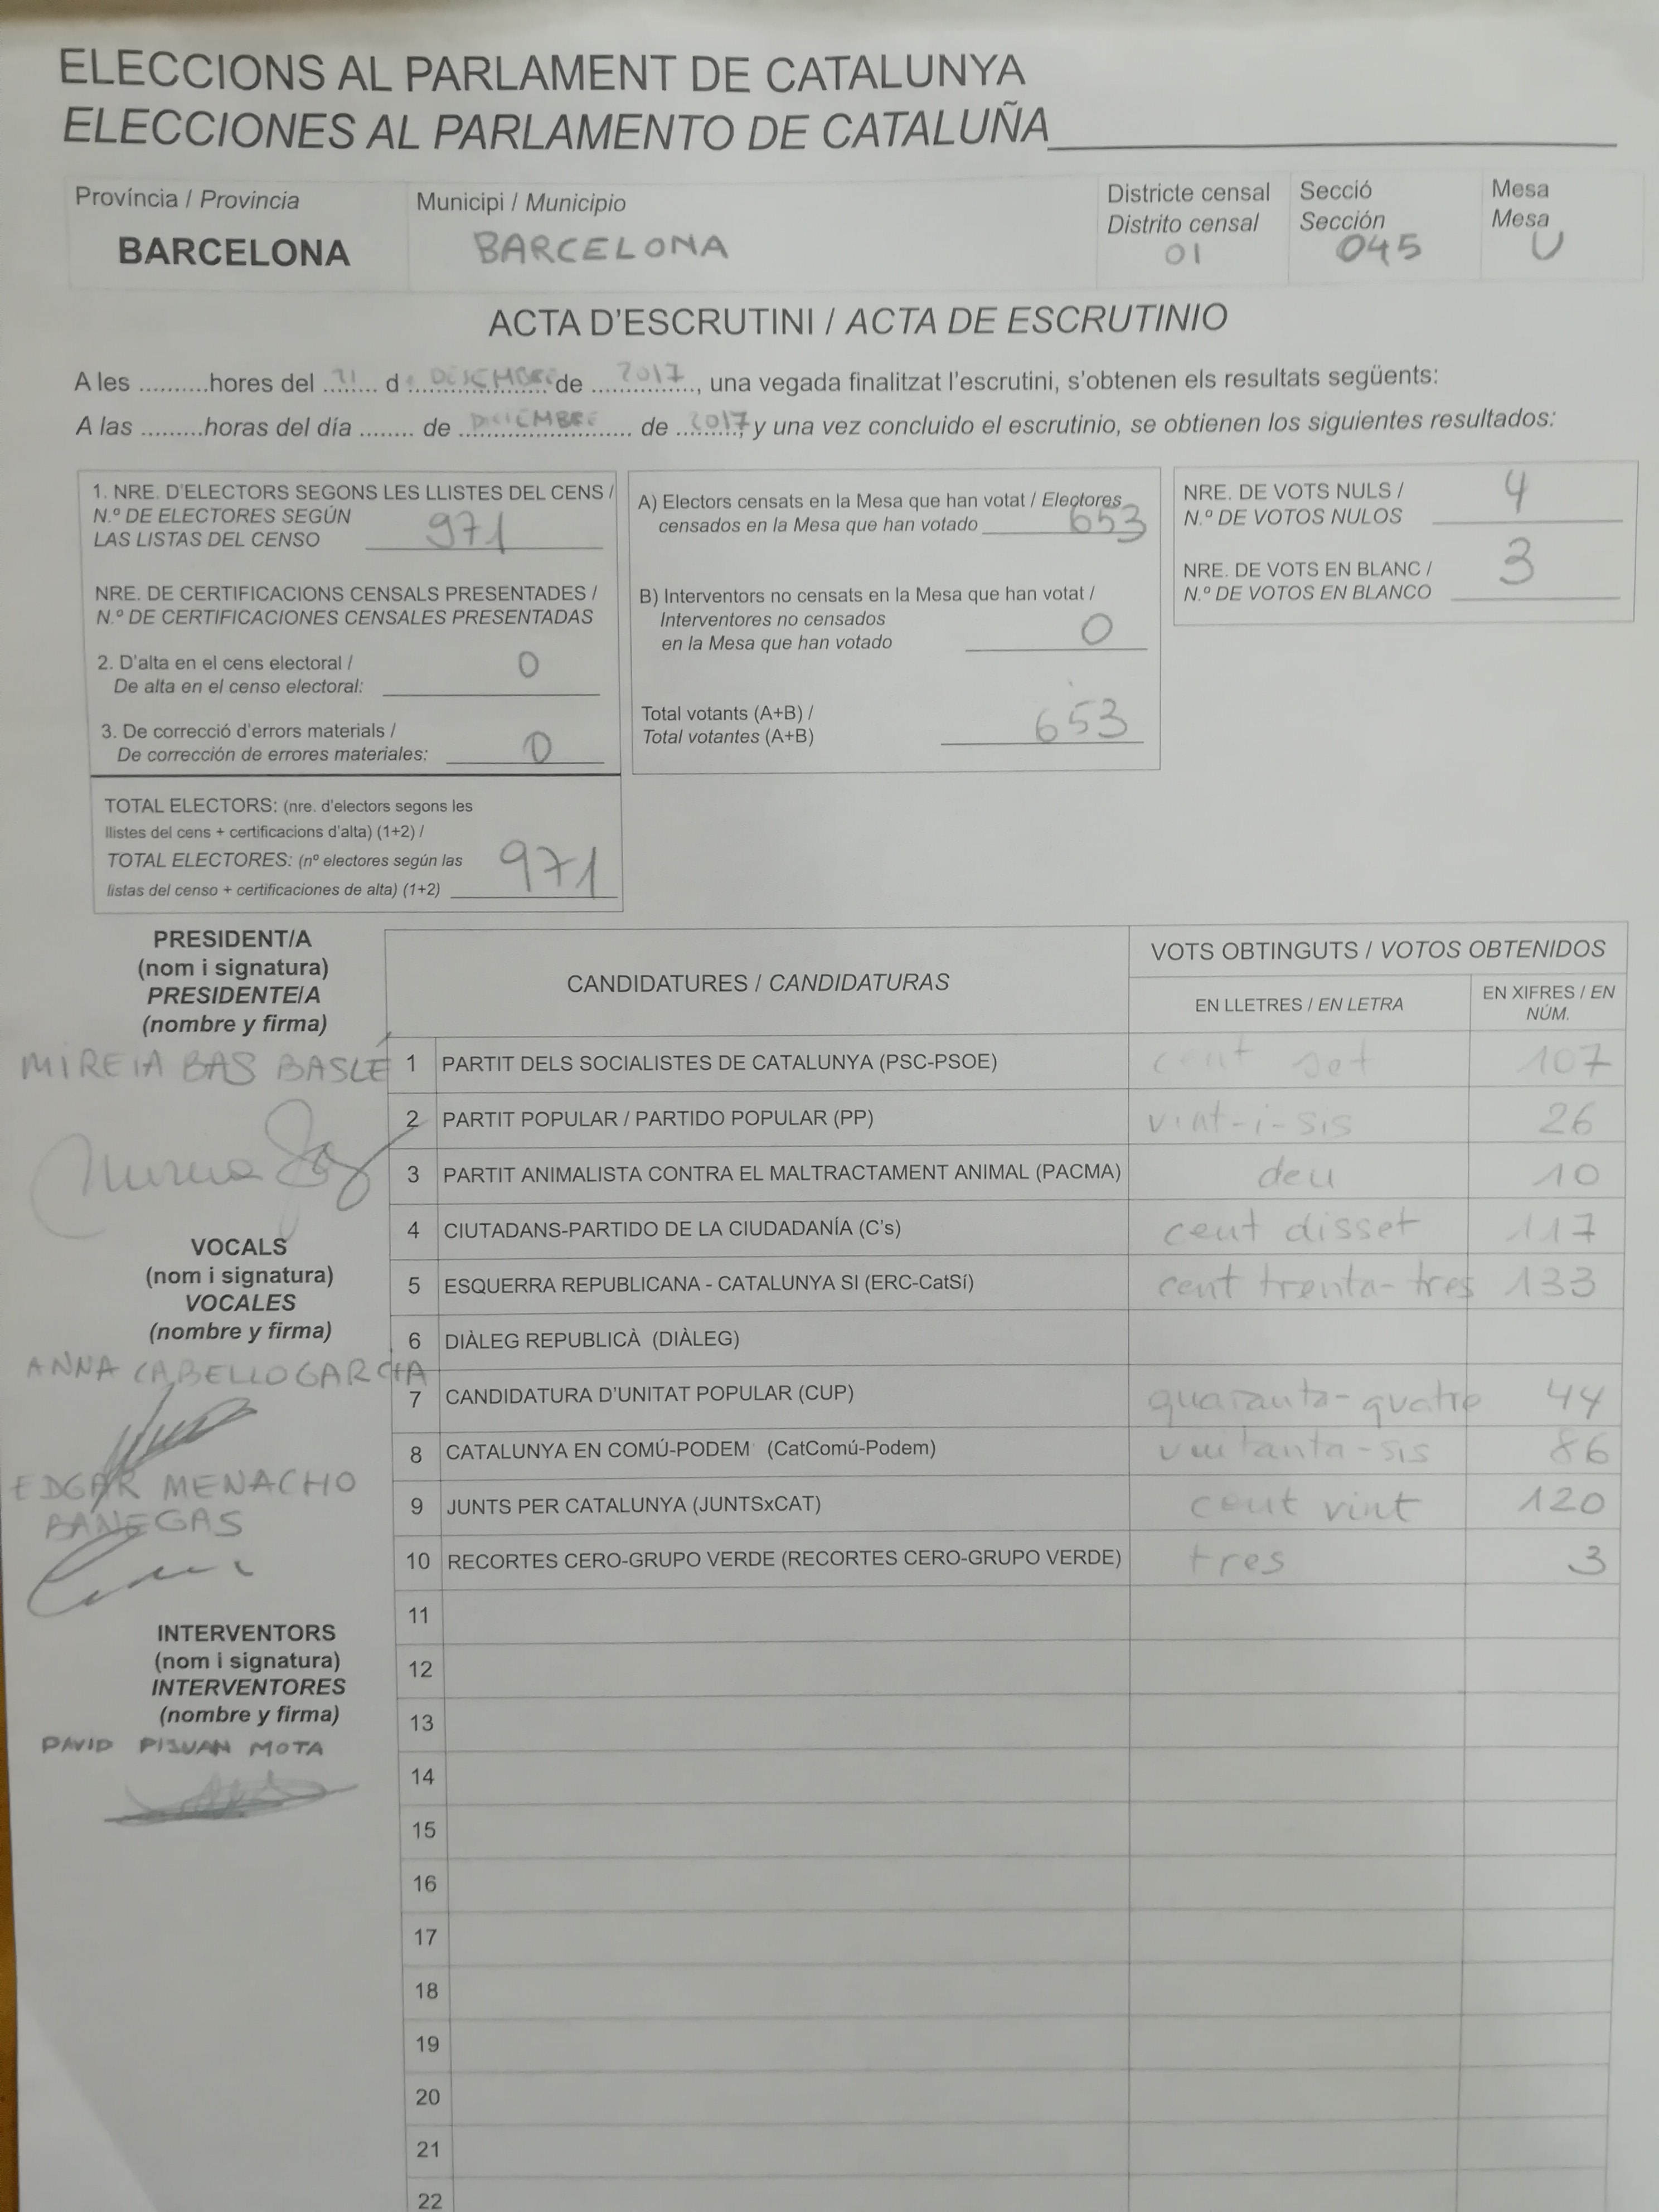 ELECCIONS AL PARLAMENT DE CATALUNYA
ELECCIONES AL PARLAMENTO DE CATALUÑA
Província / Provincia
BARCELONA
Municipi / Municipio
BARCELONA
Districte censal
Distrito censal
01
Secció
Sección
045
Mesa
Mesa
U
ACTA D'ESCRUTINI / ACTA DE ESCRUTINIO
A les .........hores del ..21.. de DESEMBRE de 2017, una vegada finalitzat l'escrutini, s'obtenen els resultats següents:
A las .........horas del día ........ de DICIEMBRE de 2017, y una vez concluido el escrutinio, se obtienen los siguientes resultados:
1. NRE. D'ELECTORS SEGONS LES LLISTES DEL CENS /
N.º DE ELECTORES SEGÚN
LAS LISTAS DEL CENSO 971
NRE. DE CERTIFICACIONS CENSALS PRESENTADES /
N.º DE CERTIFICACIONES CENSALES PRESENTADAS
2. D'alta en el cens electoral /
De alta en el censo electoral: 0
3. De correcció d'errors materials /
De corrección de errores materiales: 0
TOTAL ELECTORS: (nre. d'electors segons les
llistes del cens + certificacions d'alta) (1+2) /
TOTAL ELECTORES: (nº electores según las
listas del censo + certificaciones de alta) (1+2) 971
A) Electors censats en la Mesa que han votat / Electores
censados en la Mesa que han votado 653
B) Interventors no censats en la Mesa que han votat /
Interventores no censados
en la Mesa que han votado 0
Total votants (A+B) /
Total votantes (A+B) 653
NRE. DE VOTS NULS /
N.º DE VOTOS NULOS 4
NRE. DE VOTS EN BLANC /
N.º DE VOTOS EN BLANCO 3
PRESIDENT/A
(nom i signatura)
PRESIDENTE/A
(nombre y firma)
MIREIA BAS BASLÉ
VOCALS
(nom i signatura)
VOCALES
(nombre y firma)
ANNA CABELLO GARCIA
EDGAR MENACHO
BANEGAS
INTERVENTORS
(nom i signatura)
INTERVENTORES
(nombre y firma)
DAVID PIJUAN MOTA
CANDIDATURES / CANDIDATURAS
VOTS OBTINGUTS / VOTOS OBTENIDOS
EN LLETRES / EN LETRA
EN XIFRES / EN
NÚM.
1 PARTIT DELS SOCIALISTES DE CATALUNYA (PSC-PSOE) cent set 107
2 PARTIT POPULAR / PARTIDO POPULAR (PP) vint-i-sis 26
3 PARTIT ANIMALISTA CONTRA EL MALTRACTAMENT ANIMAL (PACMA) deu 10
4 CIUTADANS-PARTIDO DE LA CIUDADANÍA (C's) cent disset 117
5 ESQUERRA REPUBLICANA - CATALUNYA SI (ERC-CatSí) cent trenta-tres 133
6 DIÀLEG REPUBLICÀ (DIÀLEG)
7 CANDIDATURA D'UNITAT POPULAR (CUP) quaranta-quatre 44
8 CATALUNYA EN COMÚ-PODEM (CatComú-Podem) vuitanta-sis 86
9 JUNTS PER CATALUNYA (JUNTSxCAT) cent vint 120
10 RECORTES CERO-GRUPO VERDE (RECORTES CERO-GRUPO VERDE) tres 3
11
12
13
14
15
16
17
18
19
20
21
22